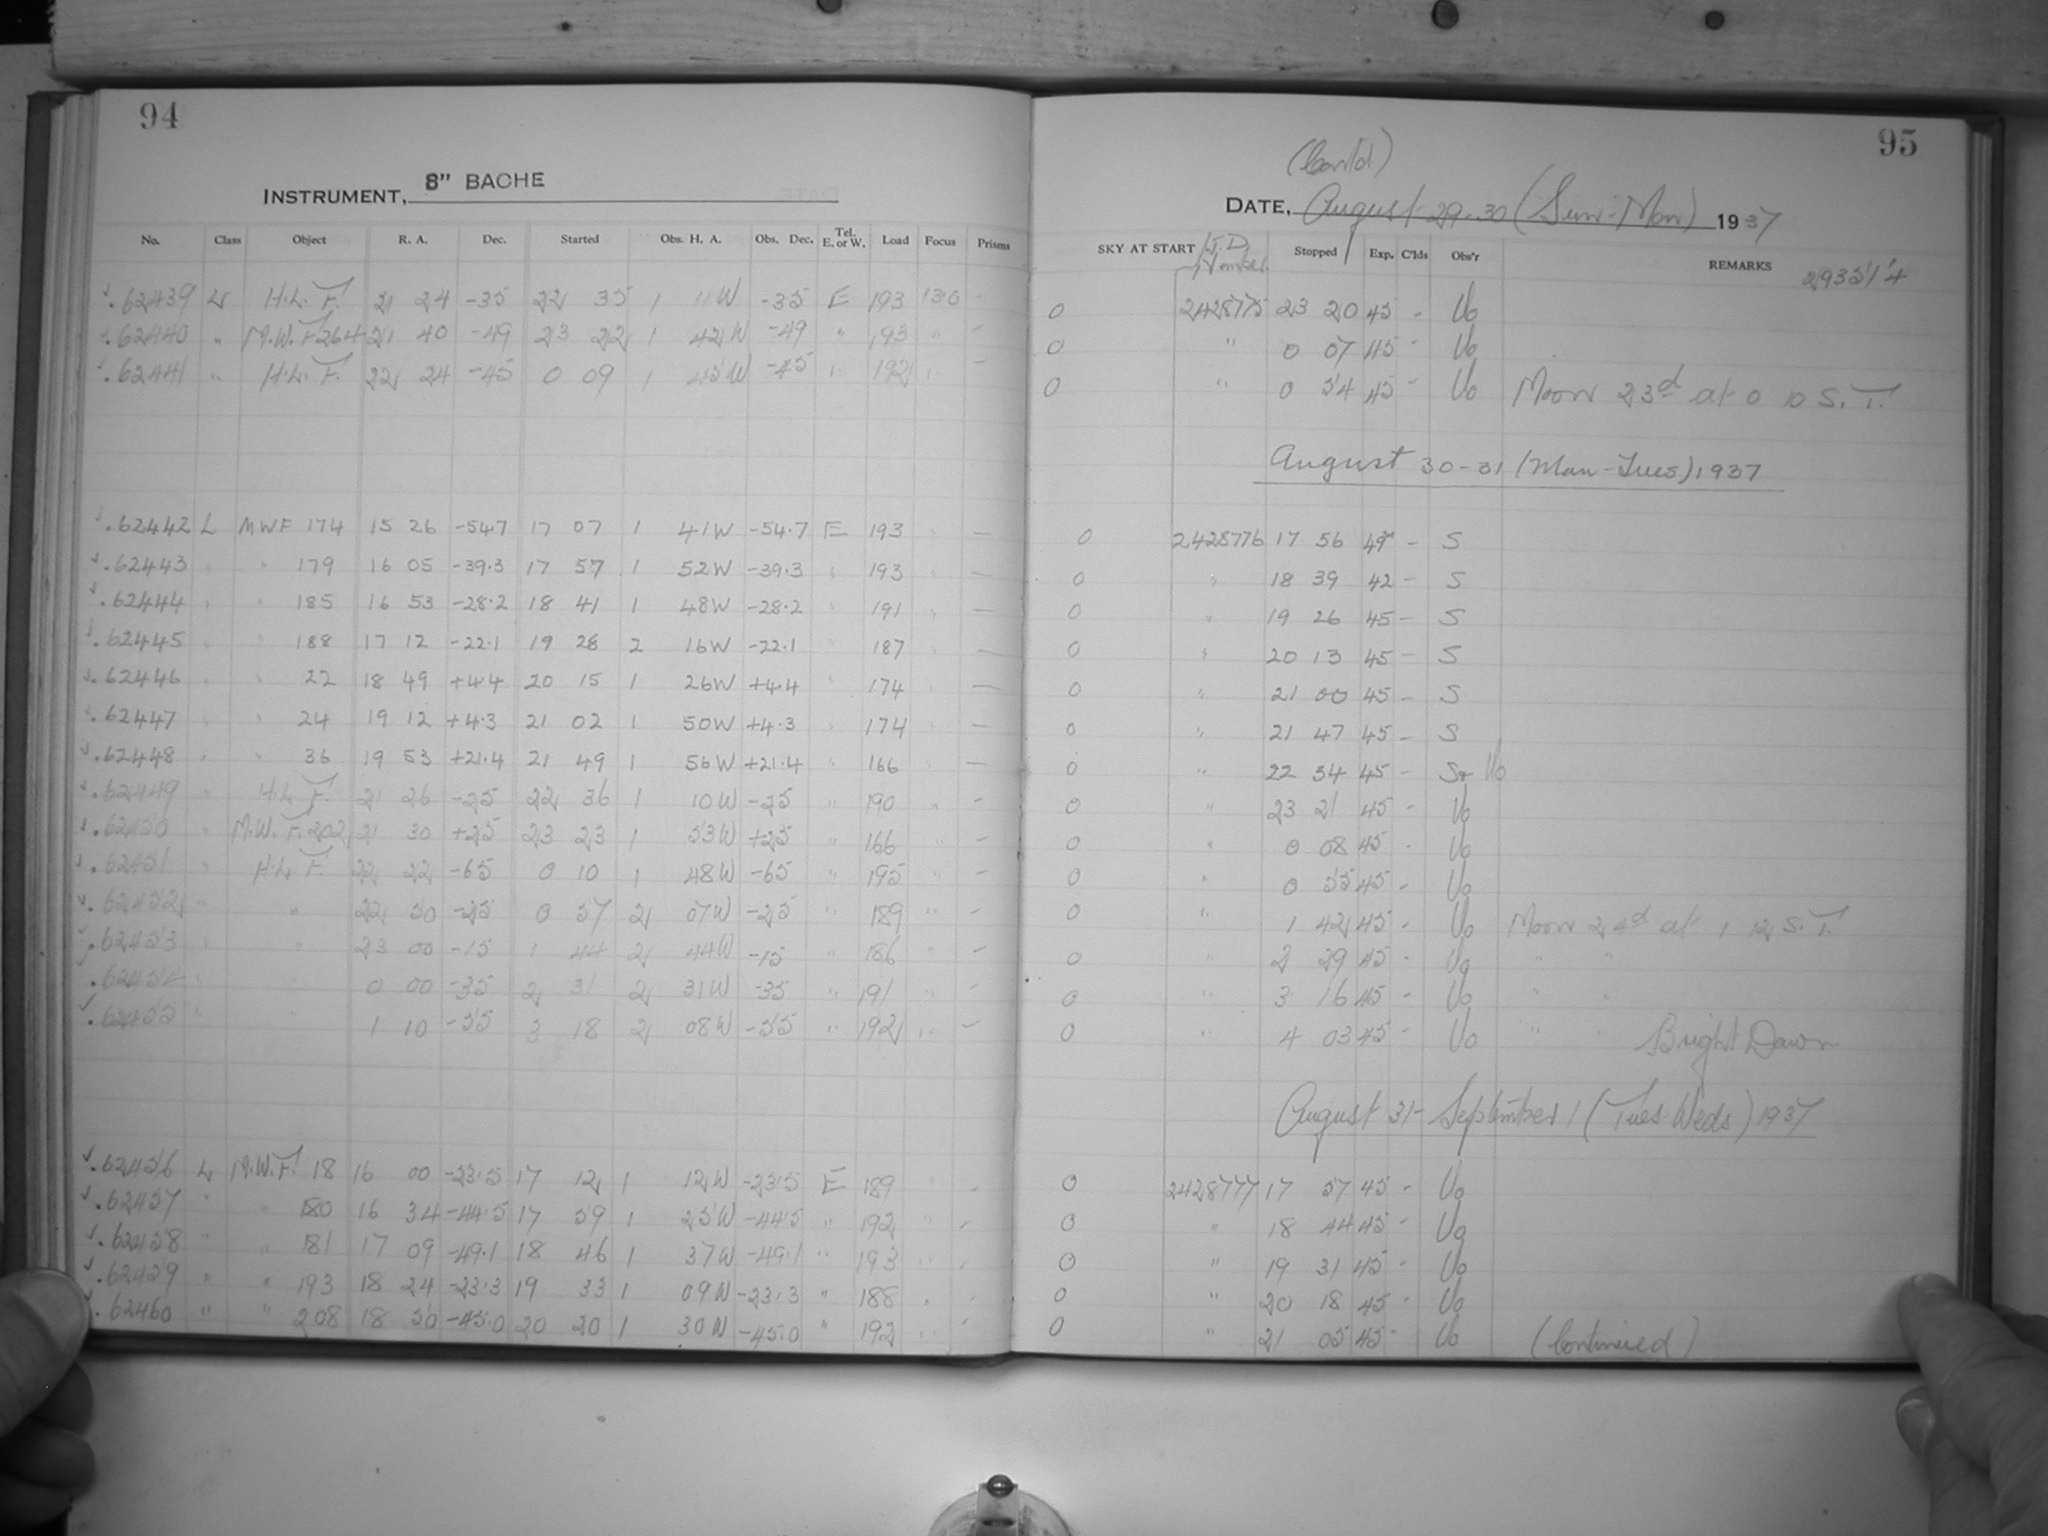 94
INSTRUMENT, 8" BACHE
No. Class Object R. A. Dec. Started Obs. H. A. Obs. Dec. Tel. E. or W. Load Focus Prisms
.62439 L H.L.F. 21 24 -35 22 35 1 11W -35 E 193 13.0 -
.62440 " M.W.F 264 21 40 -49 23 22 1 42W -49 " 193 " -
.62441 " H.L.F. 22 24 -45 0 09 1 45W -45 " 192 " -
.62442 L MWF 174 15 26 -54.7 17 07 1 41W -54.7 E 193 -
.62443 " " 179 16 05 -39.3 17 57 1 52W -39.3 " 193 " -
.62444 " " 185 16 53 -28.2 18 41 1 48W -28.2 " 191 " -
.62445 " " 188 17 12 -22.1 19 28 2 16W -22.1 " 187 " -
.62446 " " 22 18 49 +4.4 20 15 1 26W +4.4 " 174 " -
.62447 " " 24 19 12 +4.3 21 02 1 50W +4.3 " 174 " -
.62448 " " 36 19 53 +21.4 21 49 1 56W +21.4 " 166 " -
.62449 " H.L.F. 21 26 -25 22 36 1 10W -25 " 190 " -
.62450 " M.W.F. 202 21 30 +25 23 23 1 53W +25 " 166 " -
.62451 " H.L.F. 22 22 -65 0 10 1 48W -65 " 195 " -
.62452 " " 22 50 -25 0 57 2 07W -25 " 189 " -
.62453 " " 23 00 -15 1 44 2 44W -15 " 186 " -
.62454 " " 0 00 -35 2 31 2 31W -35 " 191 " -
.62455 " " 1 10 -55 3 18 2 08W -55 " 192 " -
.62456 L M.W.F. 18 16 00 -23.5 17 12 1 12W -23.5 E 189 -
.62457 " " 180 16 34 -44.5 17 59 1 25W -44.5 " 192 " -
.62458 " " 181 17 09 -49.1 18 46 1 37W -49.1 " 193 " -
.62459 " " 193 18 24 -23.3 19 33 1 09W -23.3 " 188 " -
.62460 " " 208 18 50 -45.0 20 20 1 30W -45.0 " 192 " -
95
(Contd)
DATE, August 29-30 (Sun-Mon) 1937
SKY AT START J.D. Number Stopped Exp. C'lds Obs'r REMARKS 29351'4
0 2428775 23 20 45 - Uo
0 " 0 07 45 - Uo
0 " 0 54 45 - Uo Moon 23d at 0 10 S.T.
August 30-31 (Mon-Tues) 1937
0 2428776 17 56 49 - S
0 " 18 39 42 - S
0 " 19 26 45 - S
0 " 20 13 45 - S
0 " 21 00 45 - S
0 " 21 47 45 - S
0 " 22 34 45 - S+Uo
0 " 23 21 45 - Uo
0 " 0 08 45 - Uo
0 " 0 55 45 - Uo
0 " 1 42 45 - Uo Moon 24d at 1 12 S.T.
0 " 2 29 45 - Uo " "
0 " 3 16 45 - Uo " "
0 " 4 03 45 - Uo " " Bright Dawn
August 31-September 1 (Tues-Weds) 1937
0 2428777 17 57 45 - Uo
0 " 18 44 45 - Uo
0 " 19 31 45 - Uo
0 " 20 18 45 - Uo
0 " 21 05 45 - Uo (Continued)